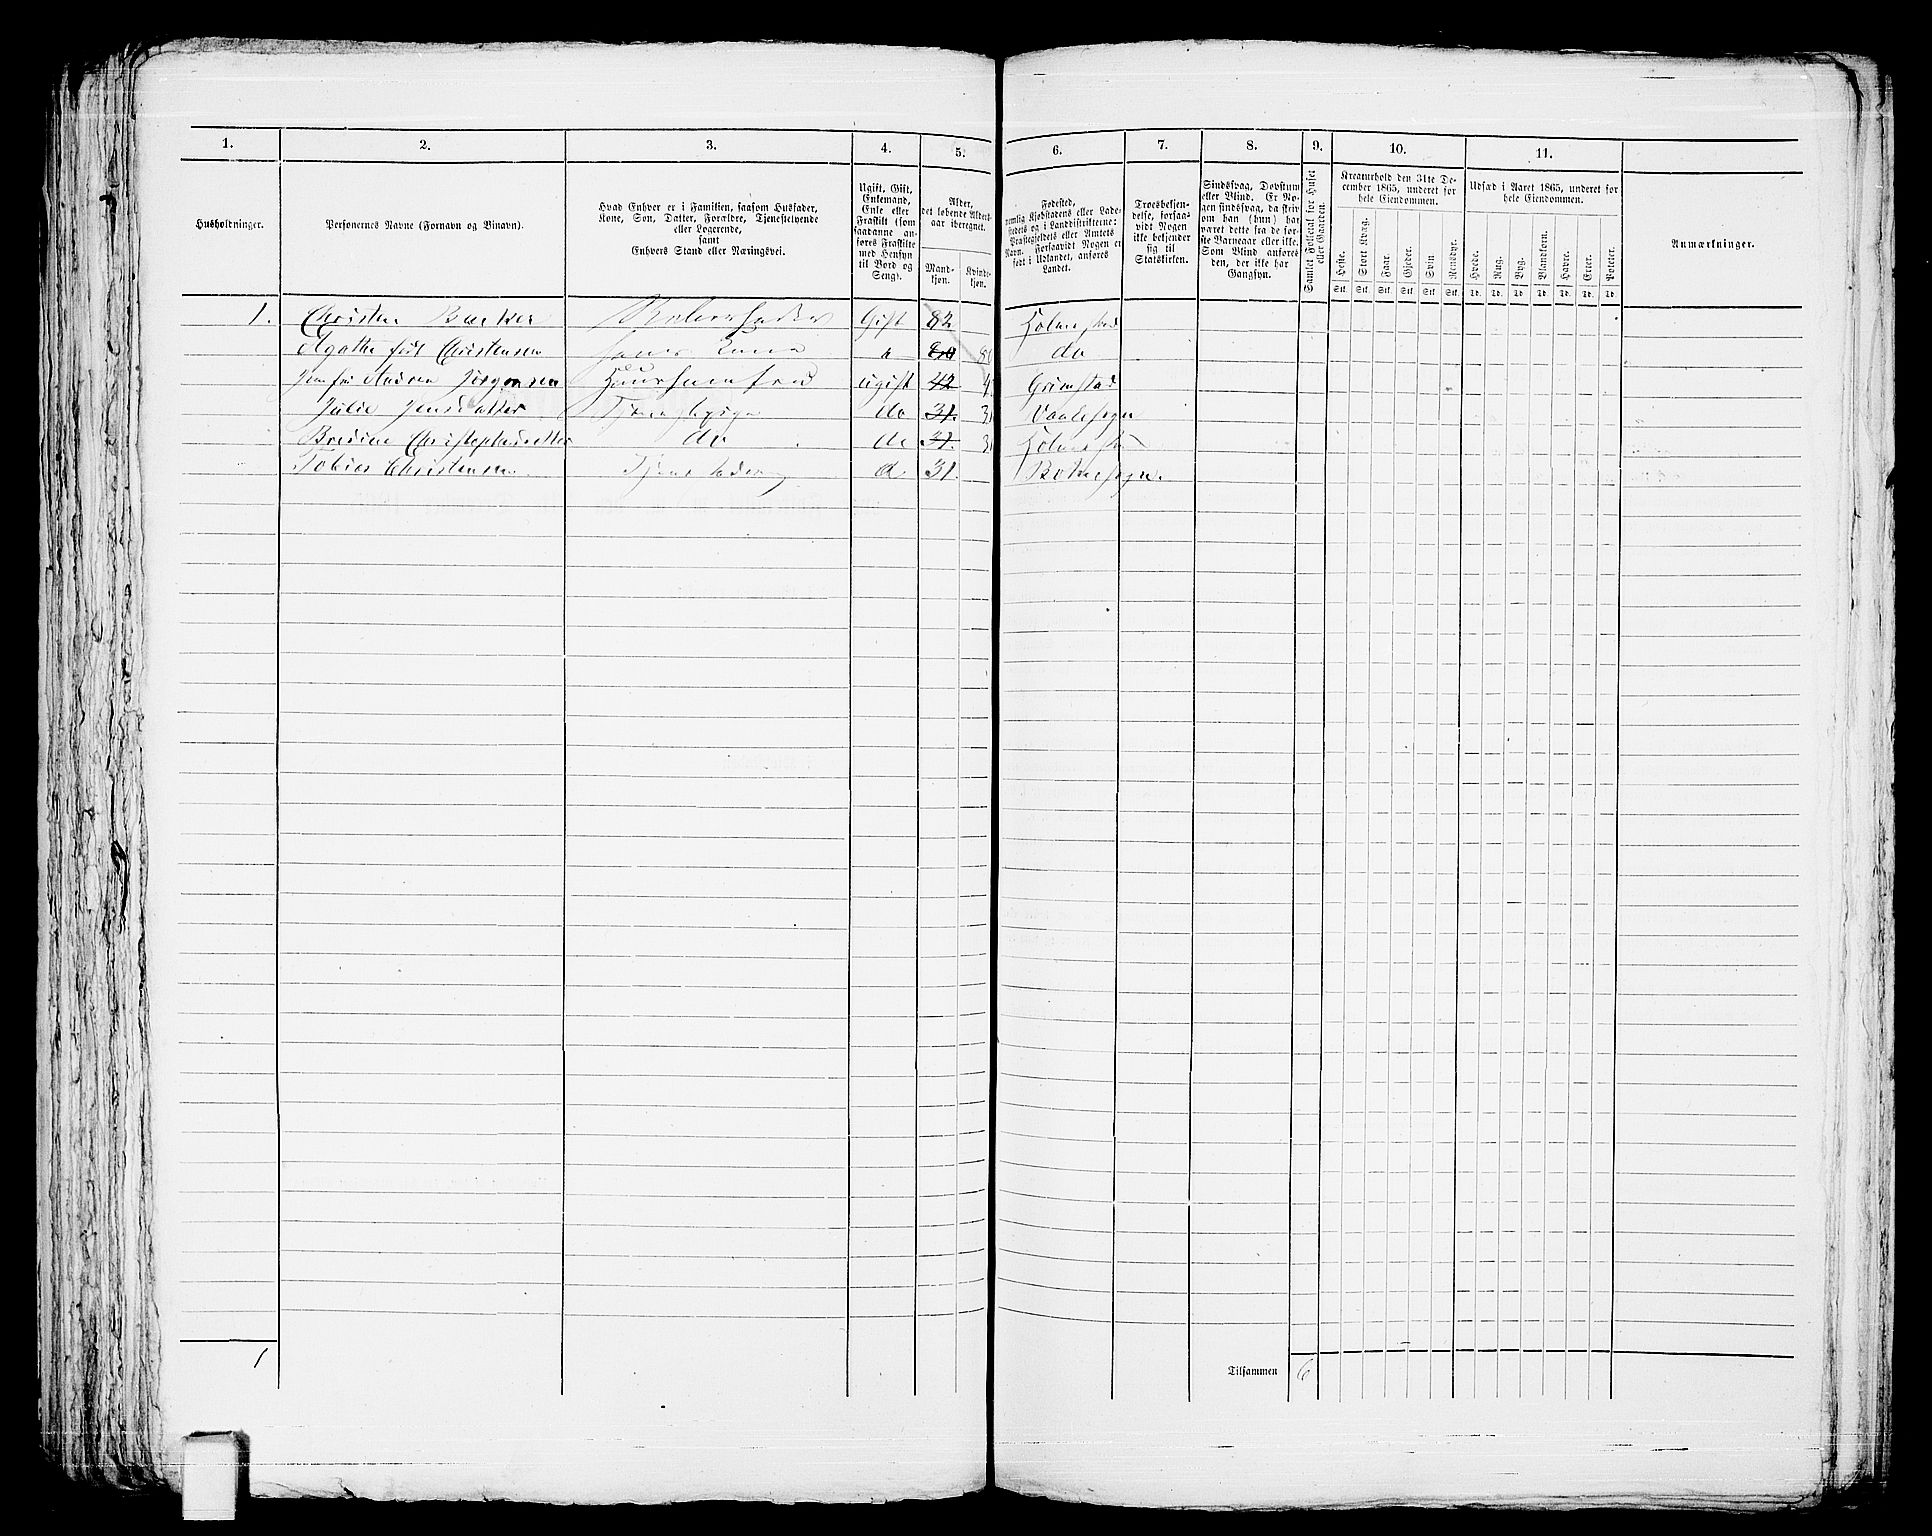 1. 2. 3. 4. 5. 6. 7. 8. 9. 10. 11.
Husholdninger.
Personernes Navne (Fornavn og Vinavn).
Hvad Enhver er i Familien, saasom Husfader,
Kone, Søn, Datter, Forældre, Tjenestetyende
eller Logerende,
samt
Enhvers Stand eller Næringsvei.
Ugift, Gift,
Enkemand,
Enke eller
Fraskilt (som
saadanne an-
føres Fraskilte
med Hensyn
til Bord og
Seng).
Alder,
det løbende Alders-
aar iberegnet.
Mand-
kjøn.
Kvinde-
kjøn.
Fødested,
nemlig Kjøbstadens eller Lade-
stedets og i Landdistrikterne:
Præstegjeldets eller Amtets
Navn. Forsaavidt Nogen er
født i Udlandet, anføres
Landet.
Troesbekjen-
delse, forsaa-
vidt Nogen
ikke bekjender
sig til
Statskirken.
Sindssvag, Døvstum
eller Blind. Er No-
gen sindssvag, da skriv
om han (hun) har
været dette fra de før-
ste Barneaar eller ikke.
Som Blind anføres
den, der ikke har
Gangsyn.
Samlet Folketal for Huset
eller Gaarden.
Kreaturhold den 31te De-
cember 1865, underet for
hele Eiendommen.
Heste. Stort Kvæg. Faar. Gjeder. Svin. Rensdyr.
Stk. Stk. Stk. Stk. Stk. Stk.
Udsæd i Aaret 1865, underet for
hele Eiendommen.
Hvede. Rug. Byg. Blandkorn. Havre. Erter. Poteter.
Td. Td. Td. Td. Td. Td. Td.
Anmærkninger.
1. Christen Backer Gift 82 Holmestad
Agathe født Christensen hans Kone " 80 80 do
Jomfru Andrea Jørgensen Huusjomfru ugift 42 4 Grimstad
Julie Jensdatter Tjenestepige do 31. 31 Vaalesogn
Bredine Christophersdatter do do 31. 31 Holmestad
Tobias Christensen Tjenestedreng do 31. Botnesogn.
1
Tilsammen 6